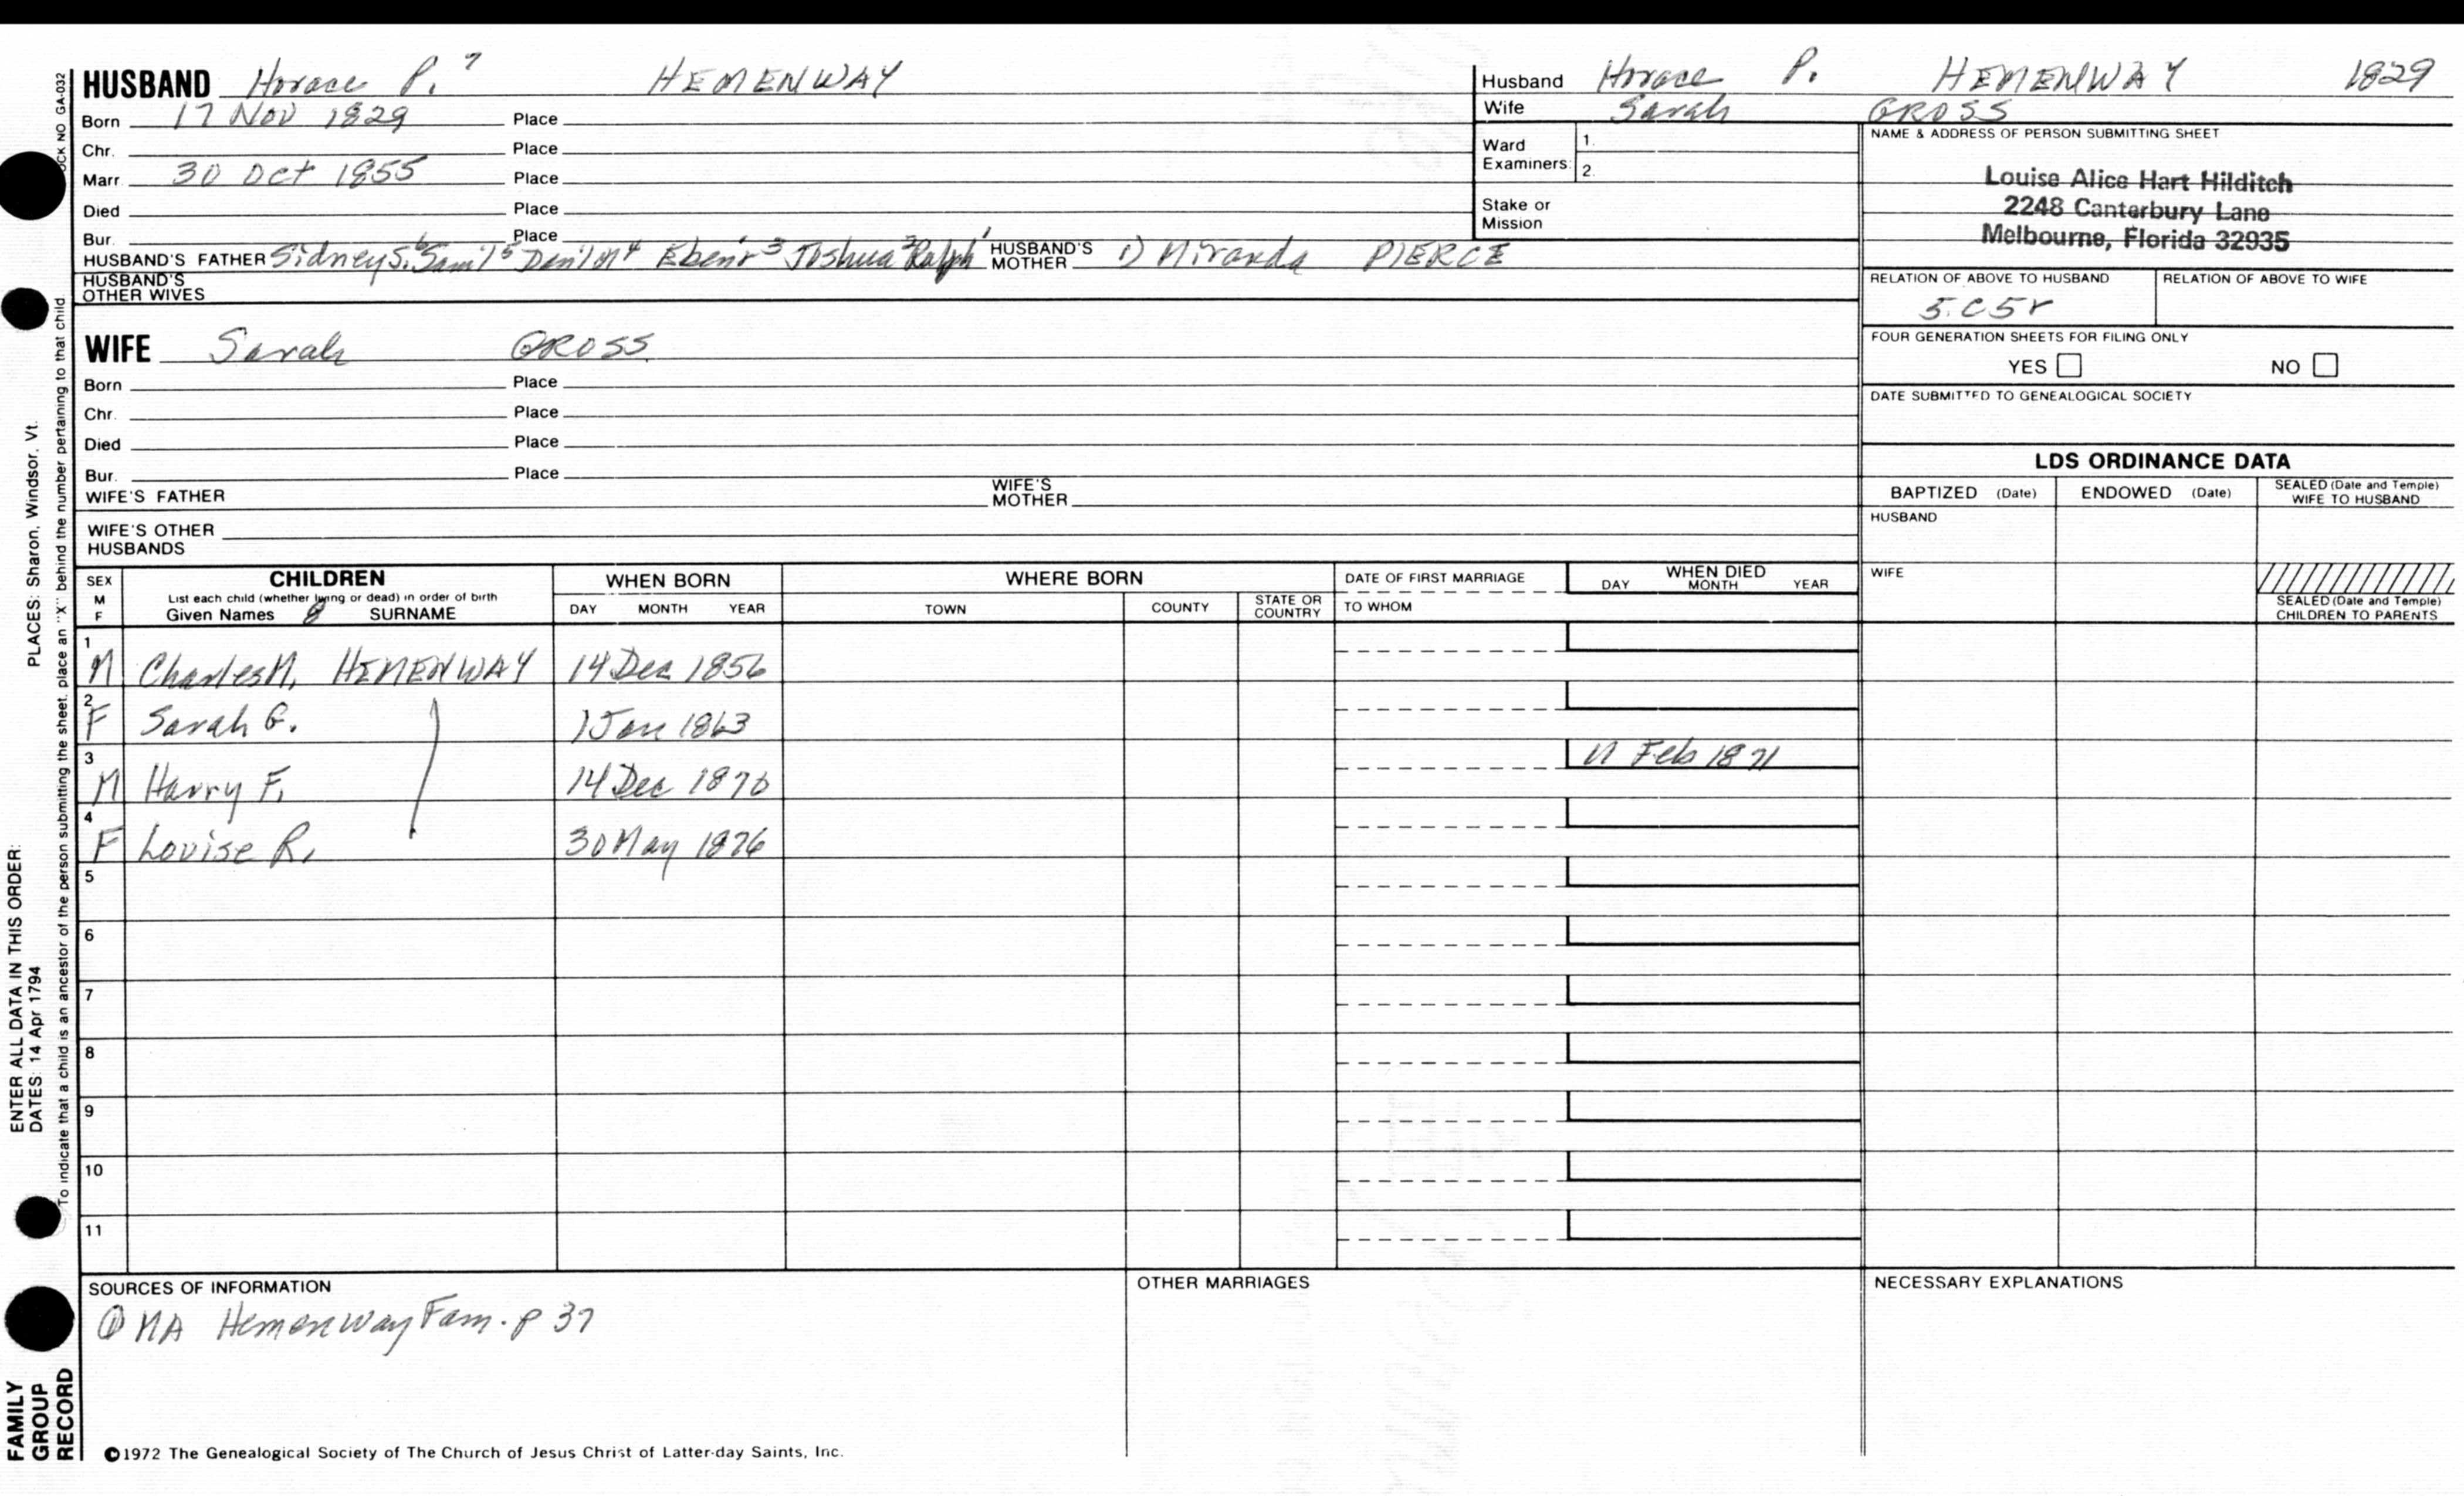 HUSBAND Horace P.7 HEMENWAY
Born 17 Nov 1829 Place
Chr. Place
Marr. 30 Oct 1855 Place
Died Place
Bur. Place
HUSBAND'S FATHER Sidney S.6 Sam'l5 Dan'l4 Eben'r3 Joshua2 Ralph1 HUSBAND'S MOTHER 1) Miranda PIERCE
HUSBAND'S OTHER WIVES
WIFE Sarah GROSS
Born Place
Chr. Place
Died Place
Bur. Place
WIFE'S FATHER WIFE'S MOTHER
WIFE'S OTHER HUSBANDS
Husband Horace P. HEMENWAY 1829
Wife Sarah GROSS
Ward Examiners: 1. 2.
Stake or Mission
NAME & ADDRESS OF PERSON SUBMITTING SHEET
Louise Alice Hart Hilditch
2248 Canterbury Lane
Melbourne, Florida 32935
RELATION OF ABOVE TO HUSBAND RELATION OF ABOVE TO WIFE
5.C5r
FOUR GENERATION SHEETS FOR FILING ONLY
YES NO
DATE SUBMITTED TO GENEALOGICAL SOCIETY
LDS ORDINANCE DATA
BAPTIZED (Date) ENDOWED (Date) SEALED (Date and Temple) WIFE TO HUSBAND
HUSBAND
WIFE
SEALED (Date and Temple) CHILDREN TO PARENTS
SEX M F CHILDREN WHEN BORN WHERE BORN DATE OF FIRST MARRIAGE WHEN DIED
List each child (whether living or dead) in order of birth
Given Names SURNAME DAY MONTH YEAR TOWN COUNTY STATE OR COUNTRY TO WHOM DAY MONTH YEAR
1 M Charles M. HEMENWAY 14 Dec 1856
2 F Sarah G. 1 Jan 1863
3 M Harry F. 14 Dec 1870 11 Feb 1871
4 F Louise R. 30 May 1876
5
6
7
8
9
10
11
SOURCES OF INFORMATION
① MA Hemenway Fam. p 37
OTHER MARRIAGES
NECESSARY EXPLANATIONS
©1972 The Genealogical Society of The Church of Jesus Christ of Latter-day Saints, Inc.
FAMILY GROUP RECORD
ENTER ALL DATA IN THIS ORDER:
DATES: 14 Apr 1794
PLACES: Sharon, Windsor, Vt.
To indicate that a child is an ancestor of the person submitting the sheet, place an "X" behind the number pertaining to that child.
NO GA-032